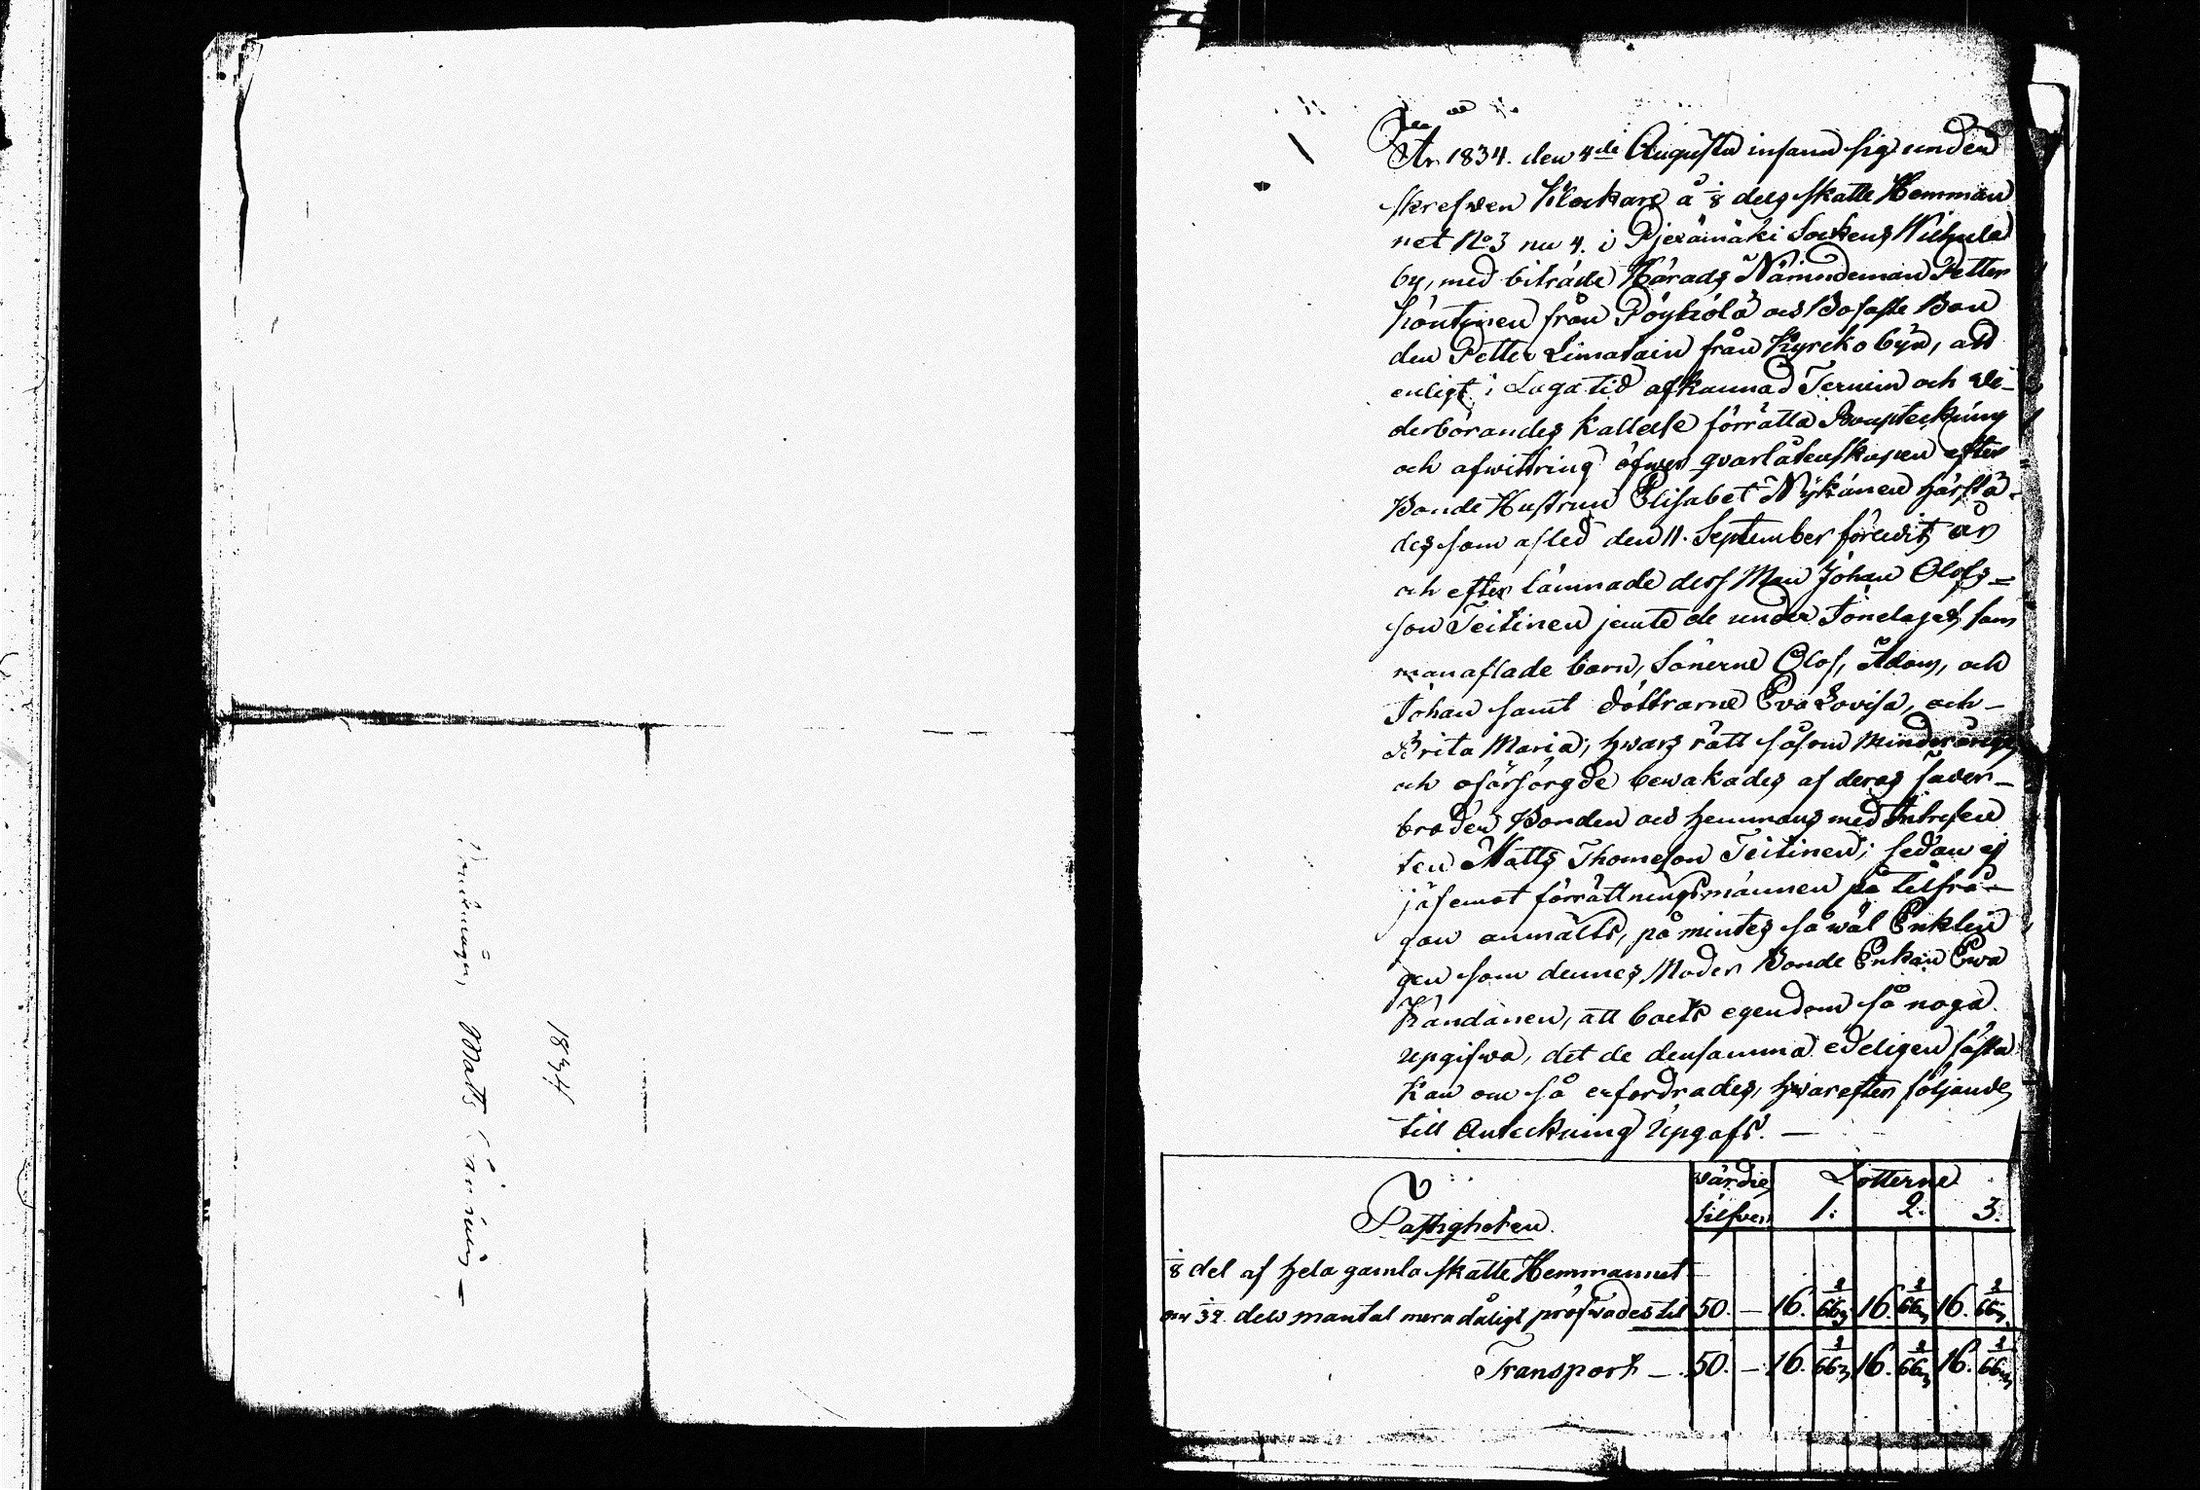 1834
Matts
År 1834. den 4de Augusti infann sig under
skrefwen Klockare å 1/8 dels skatte Hemman
net No 3 nu 4. i Pjexämäki Sockens Wihula
by, med biträde Härads Nämndeman Petter
Häntinen från Pöyhölä och Bofaste Bon
den Petter Limatain från Kyrcko byn, att
enligt i Laga tid afkunnad Termin och We-
derbörandes kallelse förrätta Bouptekning
och afwittring öfwer qvarlåtenskapen efter
Bonde Hustrun Elisabet Nykänen härstä-
des som afled den 11. September förledit år
och efter lämnade dess Man Johan Olofs-
son Teitinen jemte de under Ägtenskapet sam
manaflade barn, Sönerne Olof, Adam, och
Johan samt döttrarne Eva Lovisa, och
Brita Maria; hwars rätt såsom minderårige
och oförsörgde bewakades af deras fader-
broder Bonden och hemmans med Intressen
ten Matts Thomeson Teitinen; sedan ej
jäf emot förrättningsmännen på tilfrå-
gan anmälts, påmintes så wäl Enklin
gen som dennes Moder Bonde Enkan Ewa
Kandänen, att boets egendom så noga
upgifwa, det de densamma edeligen fästa
kan om så erfordrades, hwarefter följande
till Anteckning Upgafs. —
Fastigheten.
wärdie
silfver
Lotterne
1: 2. 3.
1/8 del af hela gamla skatte Hemmanet
om 1/32 dels mantal mera dåligt pröfwades til 50. — 16. 66 2/3 16. 66 2/3 16. 66 2/3
Transport — 50. — 16. 66 2/3 16. 66 2/3 16. 66 2/3